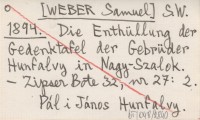 [WEBER Samuel] S.W.
1894. Die Enthüllung der
Gedenktafel der Gebrüder
Hunfalvy in Nagy-Szalok.
- Zipser Bote 32, nr 27: 2.
Pál i János Hunfalvy.